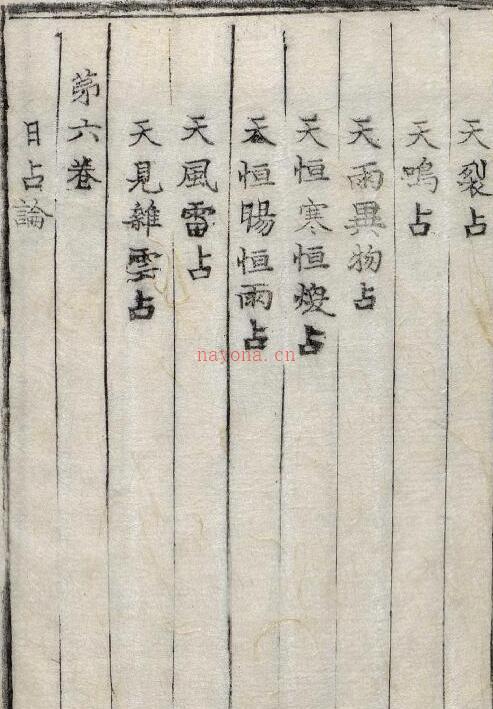 天裂占
天鳴占
天雨異物占
天恒寒恒燠占
天恒暘恒雨占
天風雷占
天見雜雲占
苐六卷
日占論
nayona.cn